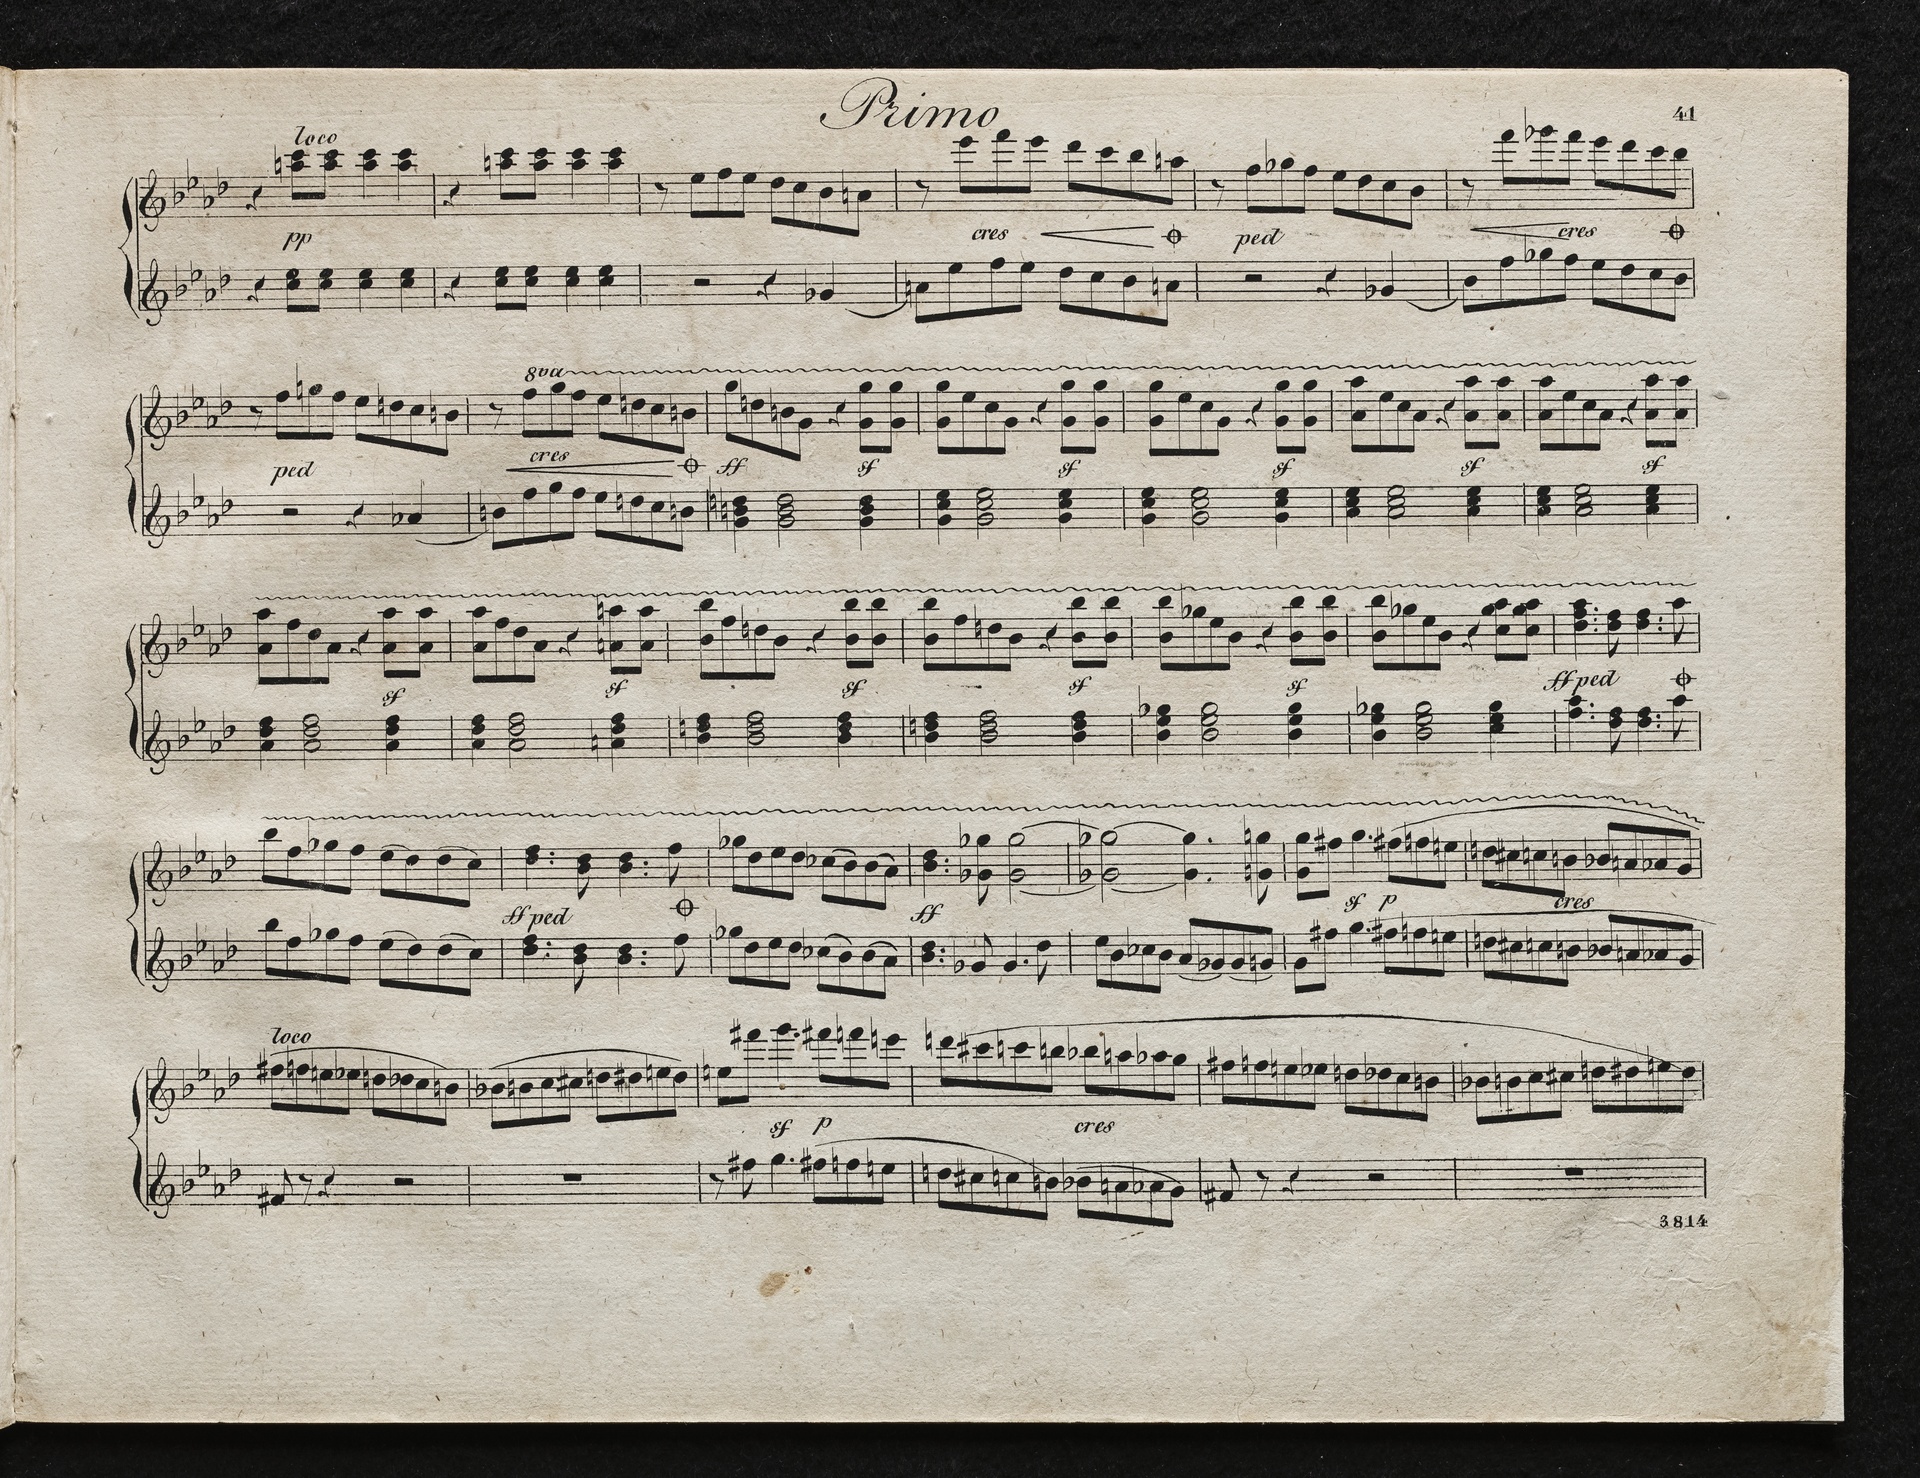 Primo
41
loco
pp
cres
ped
cres
8va
ped
cres
ff
sf
sf
sf
sf
sf
sf
sf
sf
sf
sf
ff ped
ff ped
ff
sf
p
cres
loco
sf
p
cres
3814